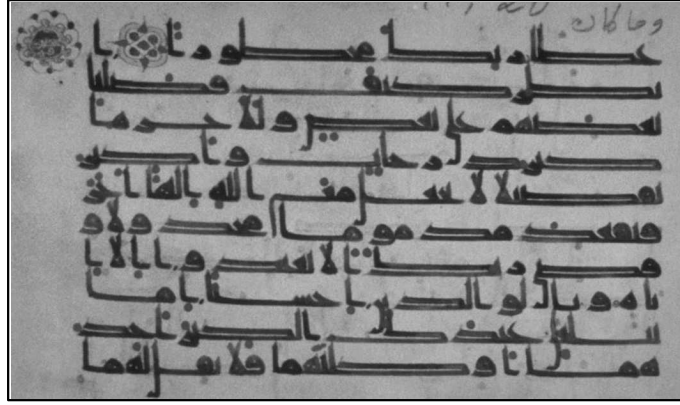 وما كان
عطا ربك محظورا ا
نظر كيف فضلنا
بعضهم على بعض وللاخره ا
كبر درجت واكبر
تفضيلا لا تجعل مع الله الها اخر
فتقعد مذموما مخذولا و
قضى ربك الا تعبدوا الا ا
ياه وبالولدين احسنا اما
يبلغن عندك الكبر احد
هما او كلهما فلا تقل لهما